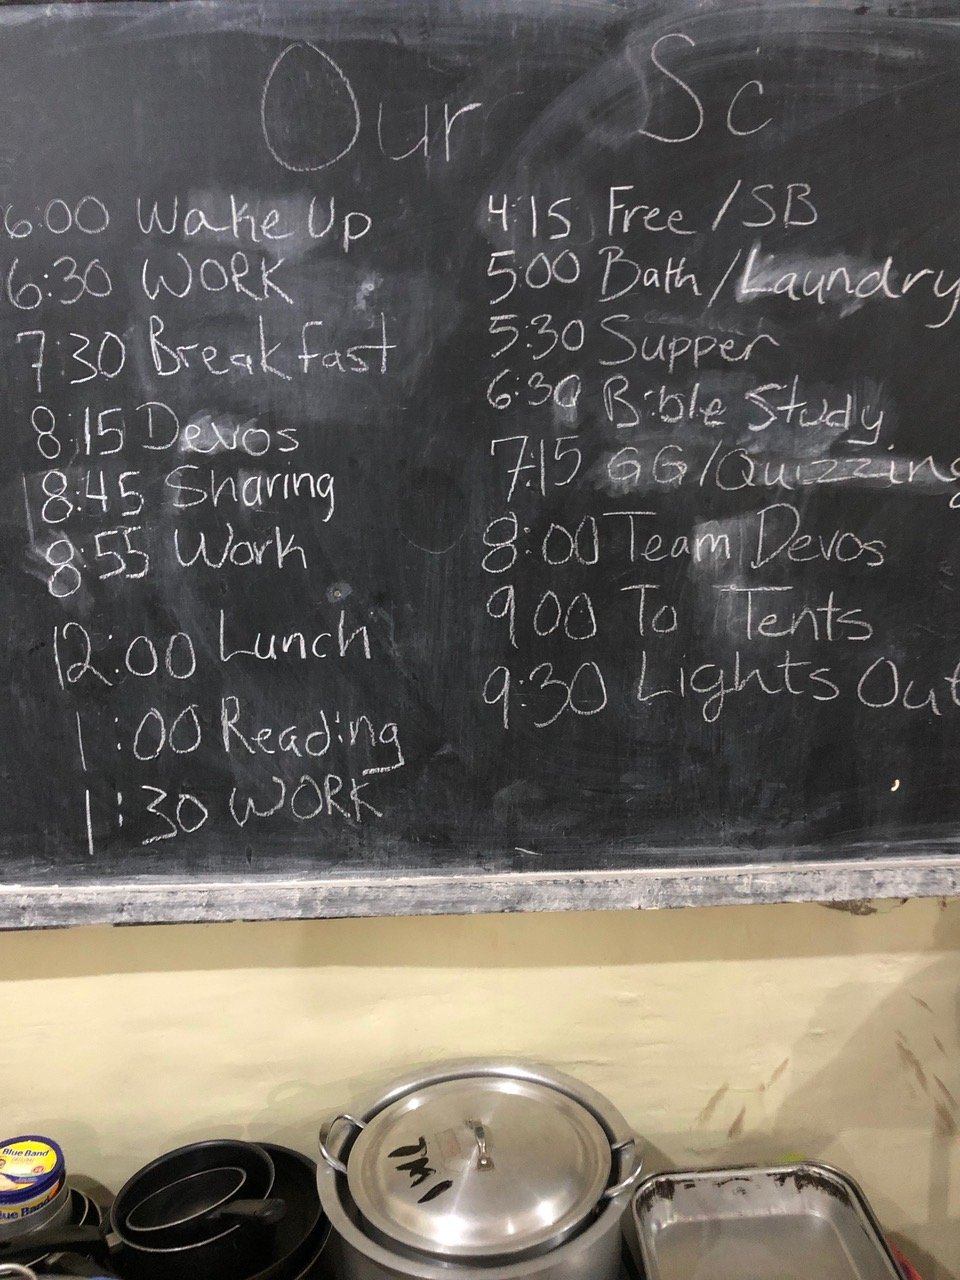 Our Sc
6:00 Wake Up
6:30 WORK
7:30 Breakfast
8:15 Devos
8:45 Sharing
8:55 Work
12:00 Lunch
1:00 Reading
1:30 WORK
4:15 Free/SB
5:00 Bath/Laundry
5:30 Supper
6:30 Bible Study
7:15 GG/Quizzing
8:00 Team Devos
9 00 To Tents
9:30 Lights Out
Blue Band
Blue Band
TMI